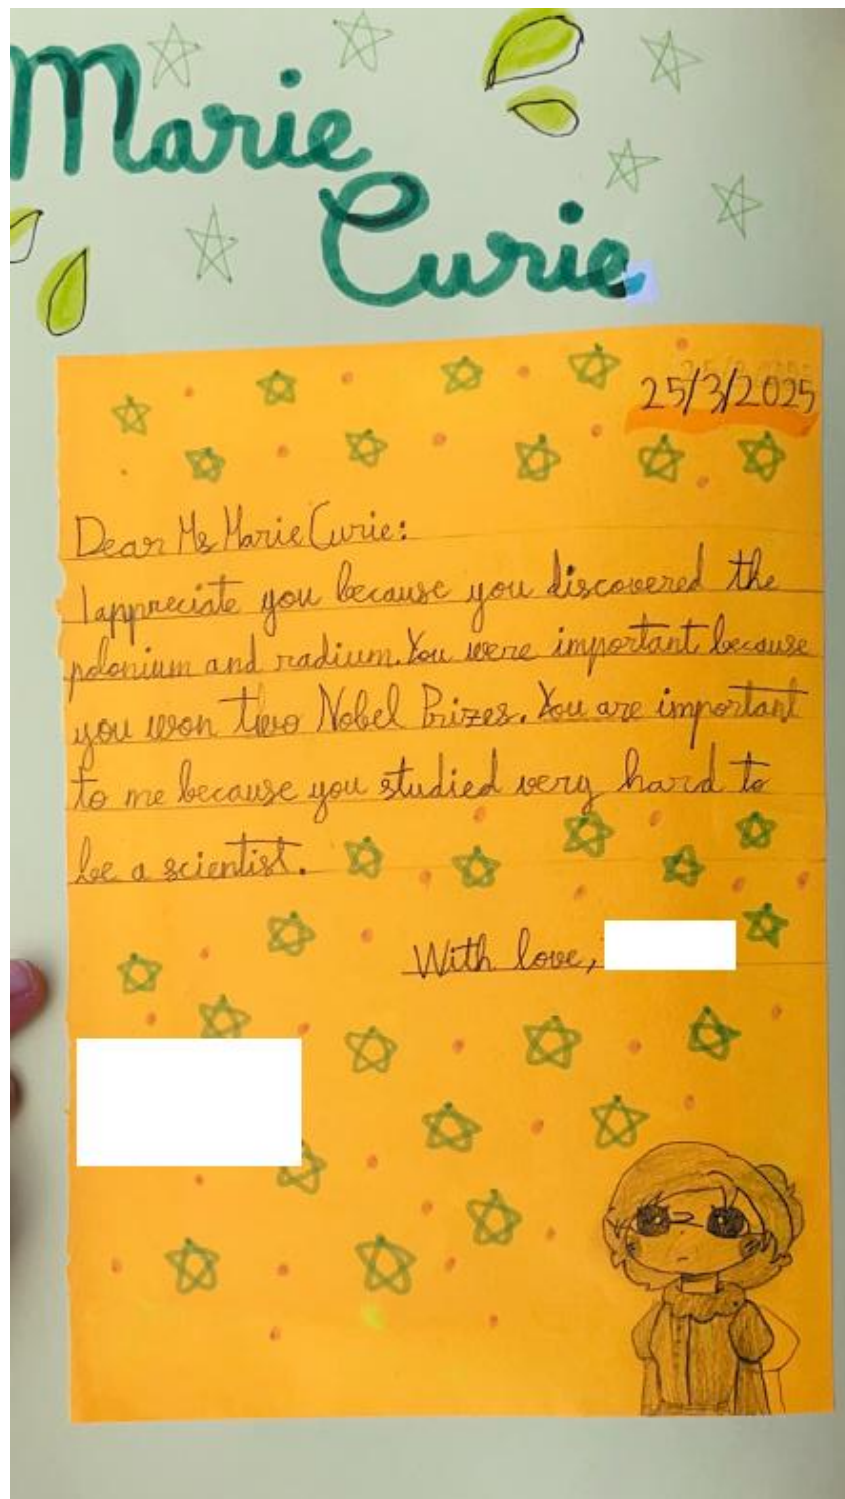 Marie
Curie
25/3/2025
Dear Ms Marie Curie:
I appreciate you because you discovered the
polonium and radium. You were important because
you won two Nobel Prizes. You are important
to me because you studied very hard to
be a scientist.
With love,